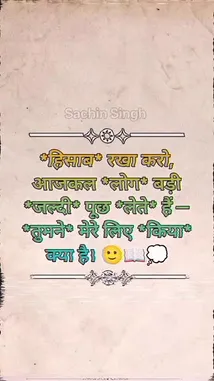 Sachin Singh
*हिसाब* रखा करो,
आजकल *लोग* बड़ी
*जल्दी* पूछ *लेते* हैं –
*तुमने* मेरे लिए *किया*
क्या है। 🙂📖💭